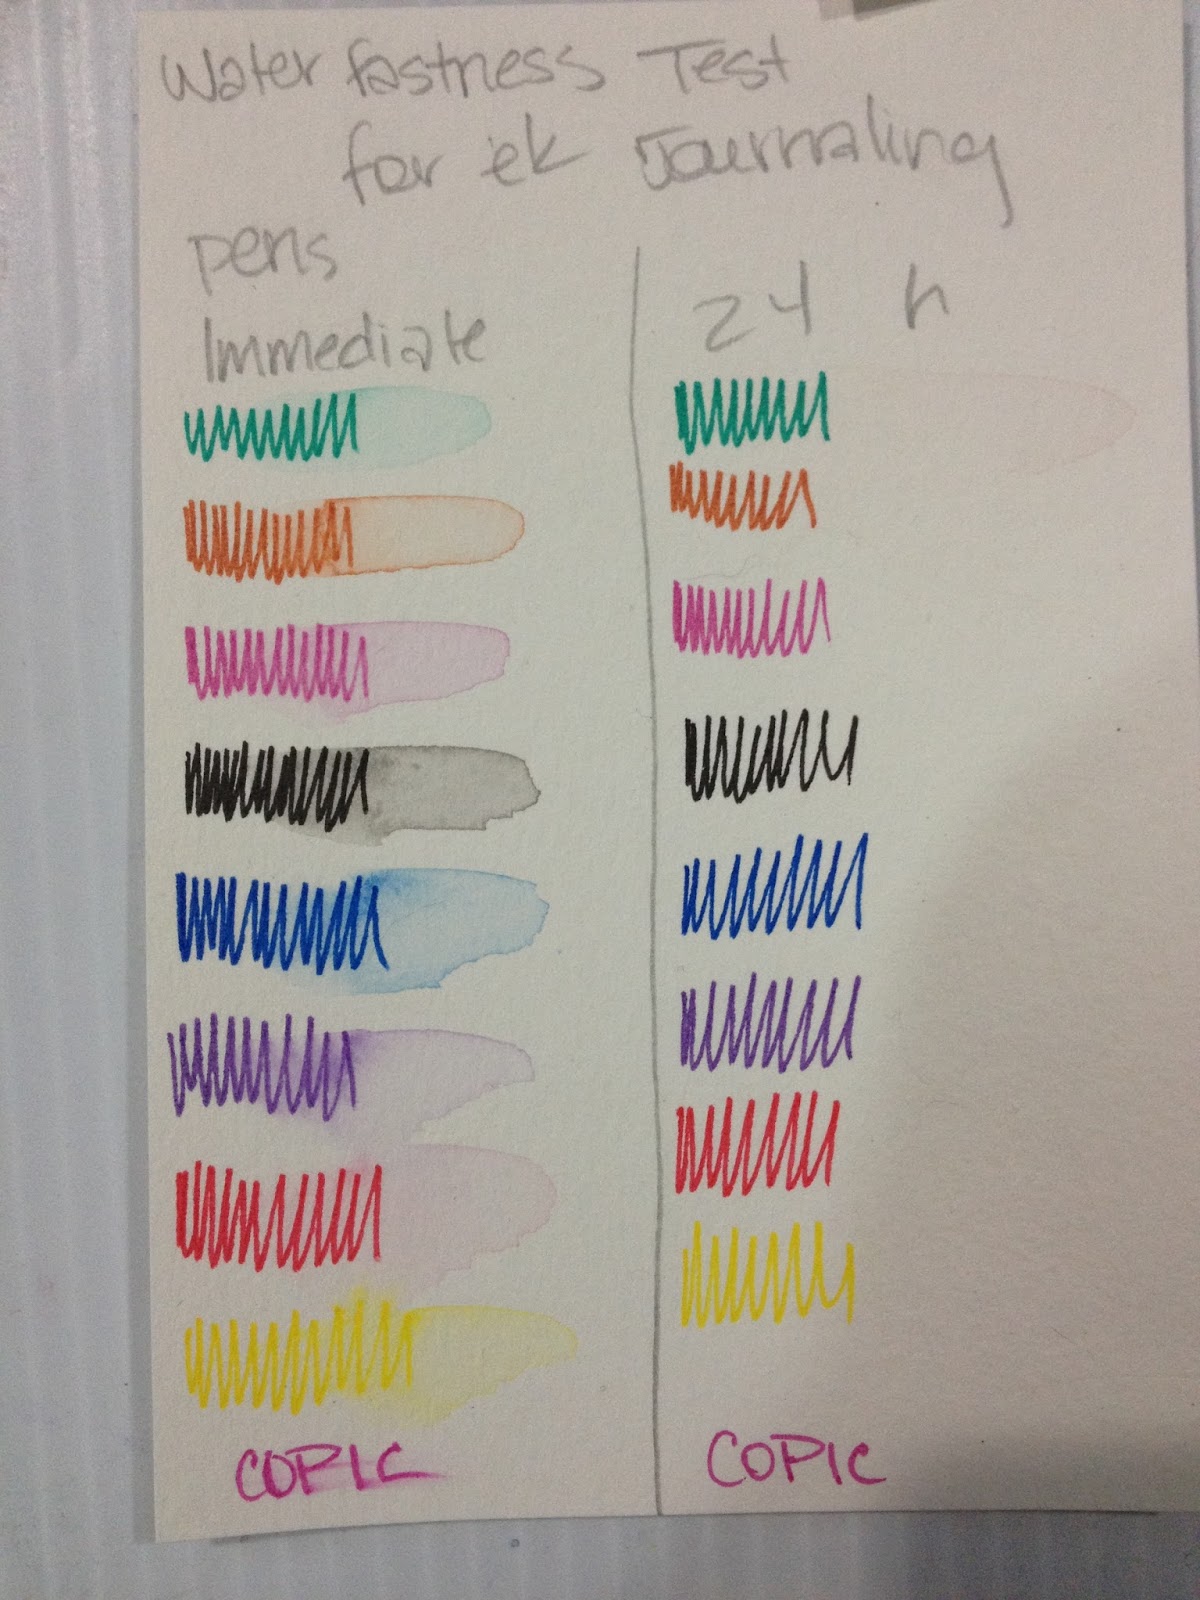 Water fastness Test
for ek Journaling
pens
Immediate
24 h
COPIC
COPIC